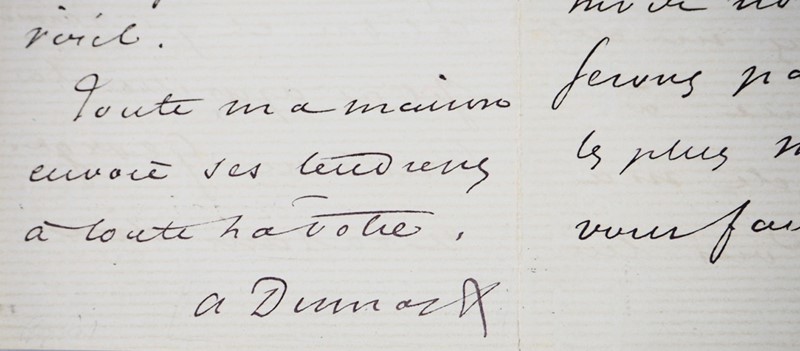 Toute ma maison
envoie ses tendresses
à toute la vôtre.
A Dumas f
ferons pa
les plus
vous fai